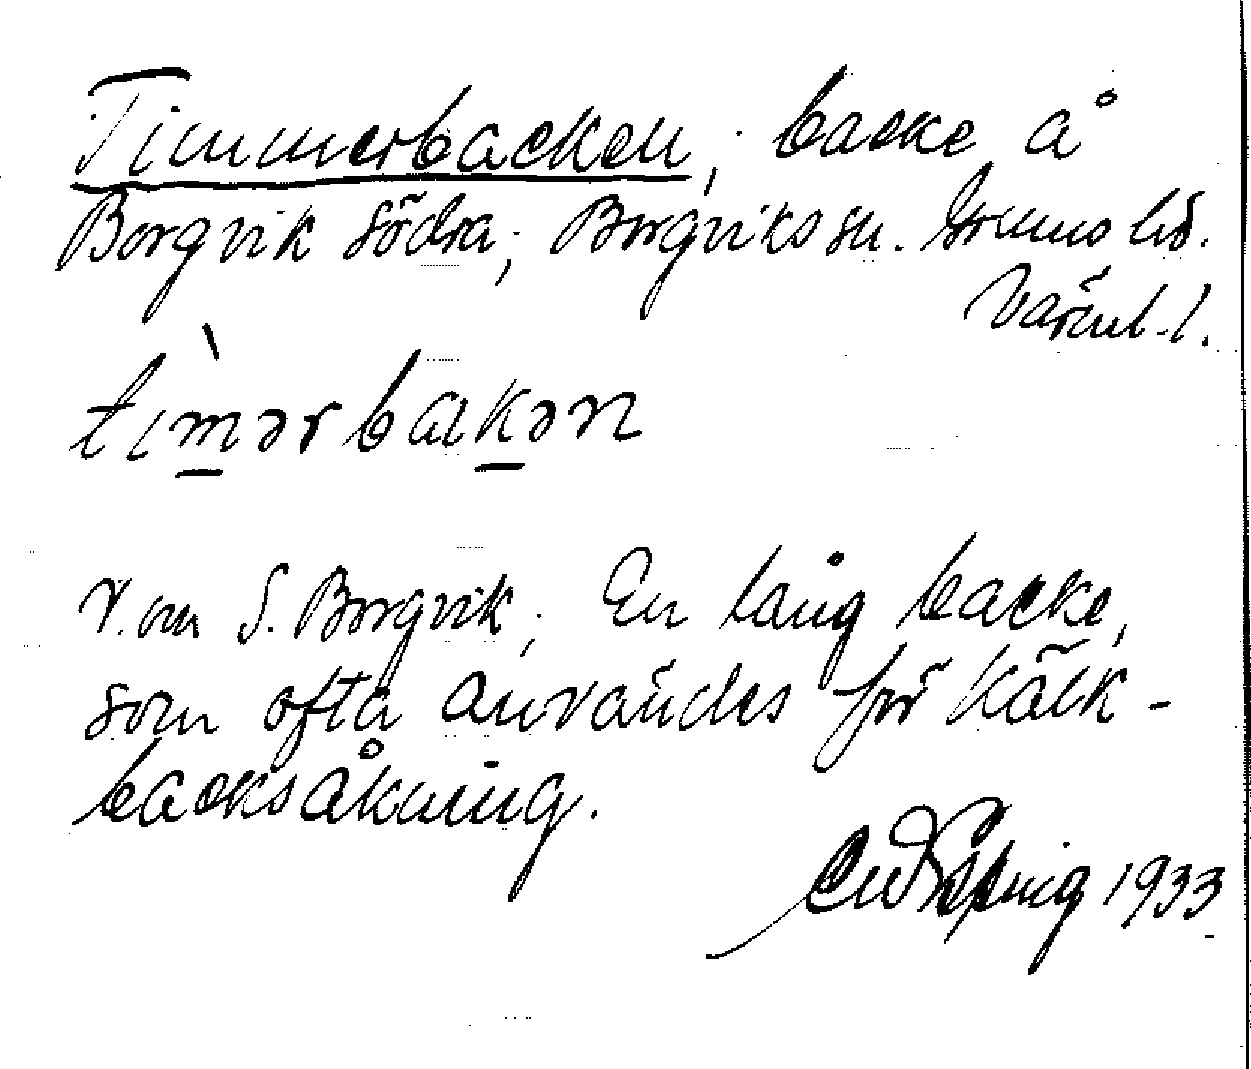 Timmerbacken, backe å
Borgvik södra, Borgviks sn. Grums hd.
Värml. l.
tìmərbakən
V. om S. Borgvik, En lång backe,
som ofta användes för kälk-
backsåkning.
1933